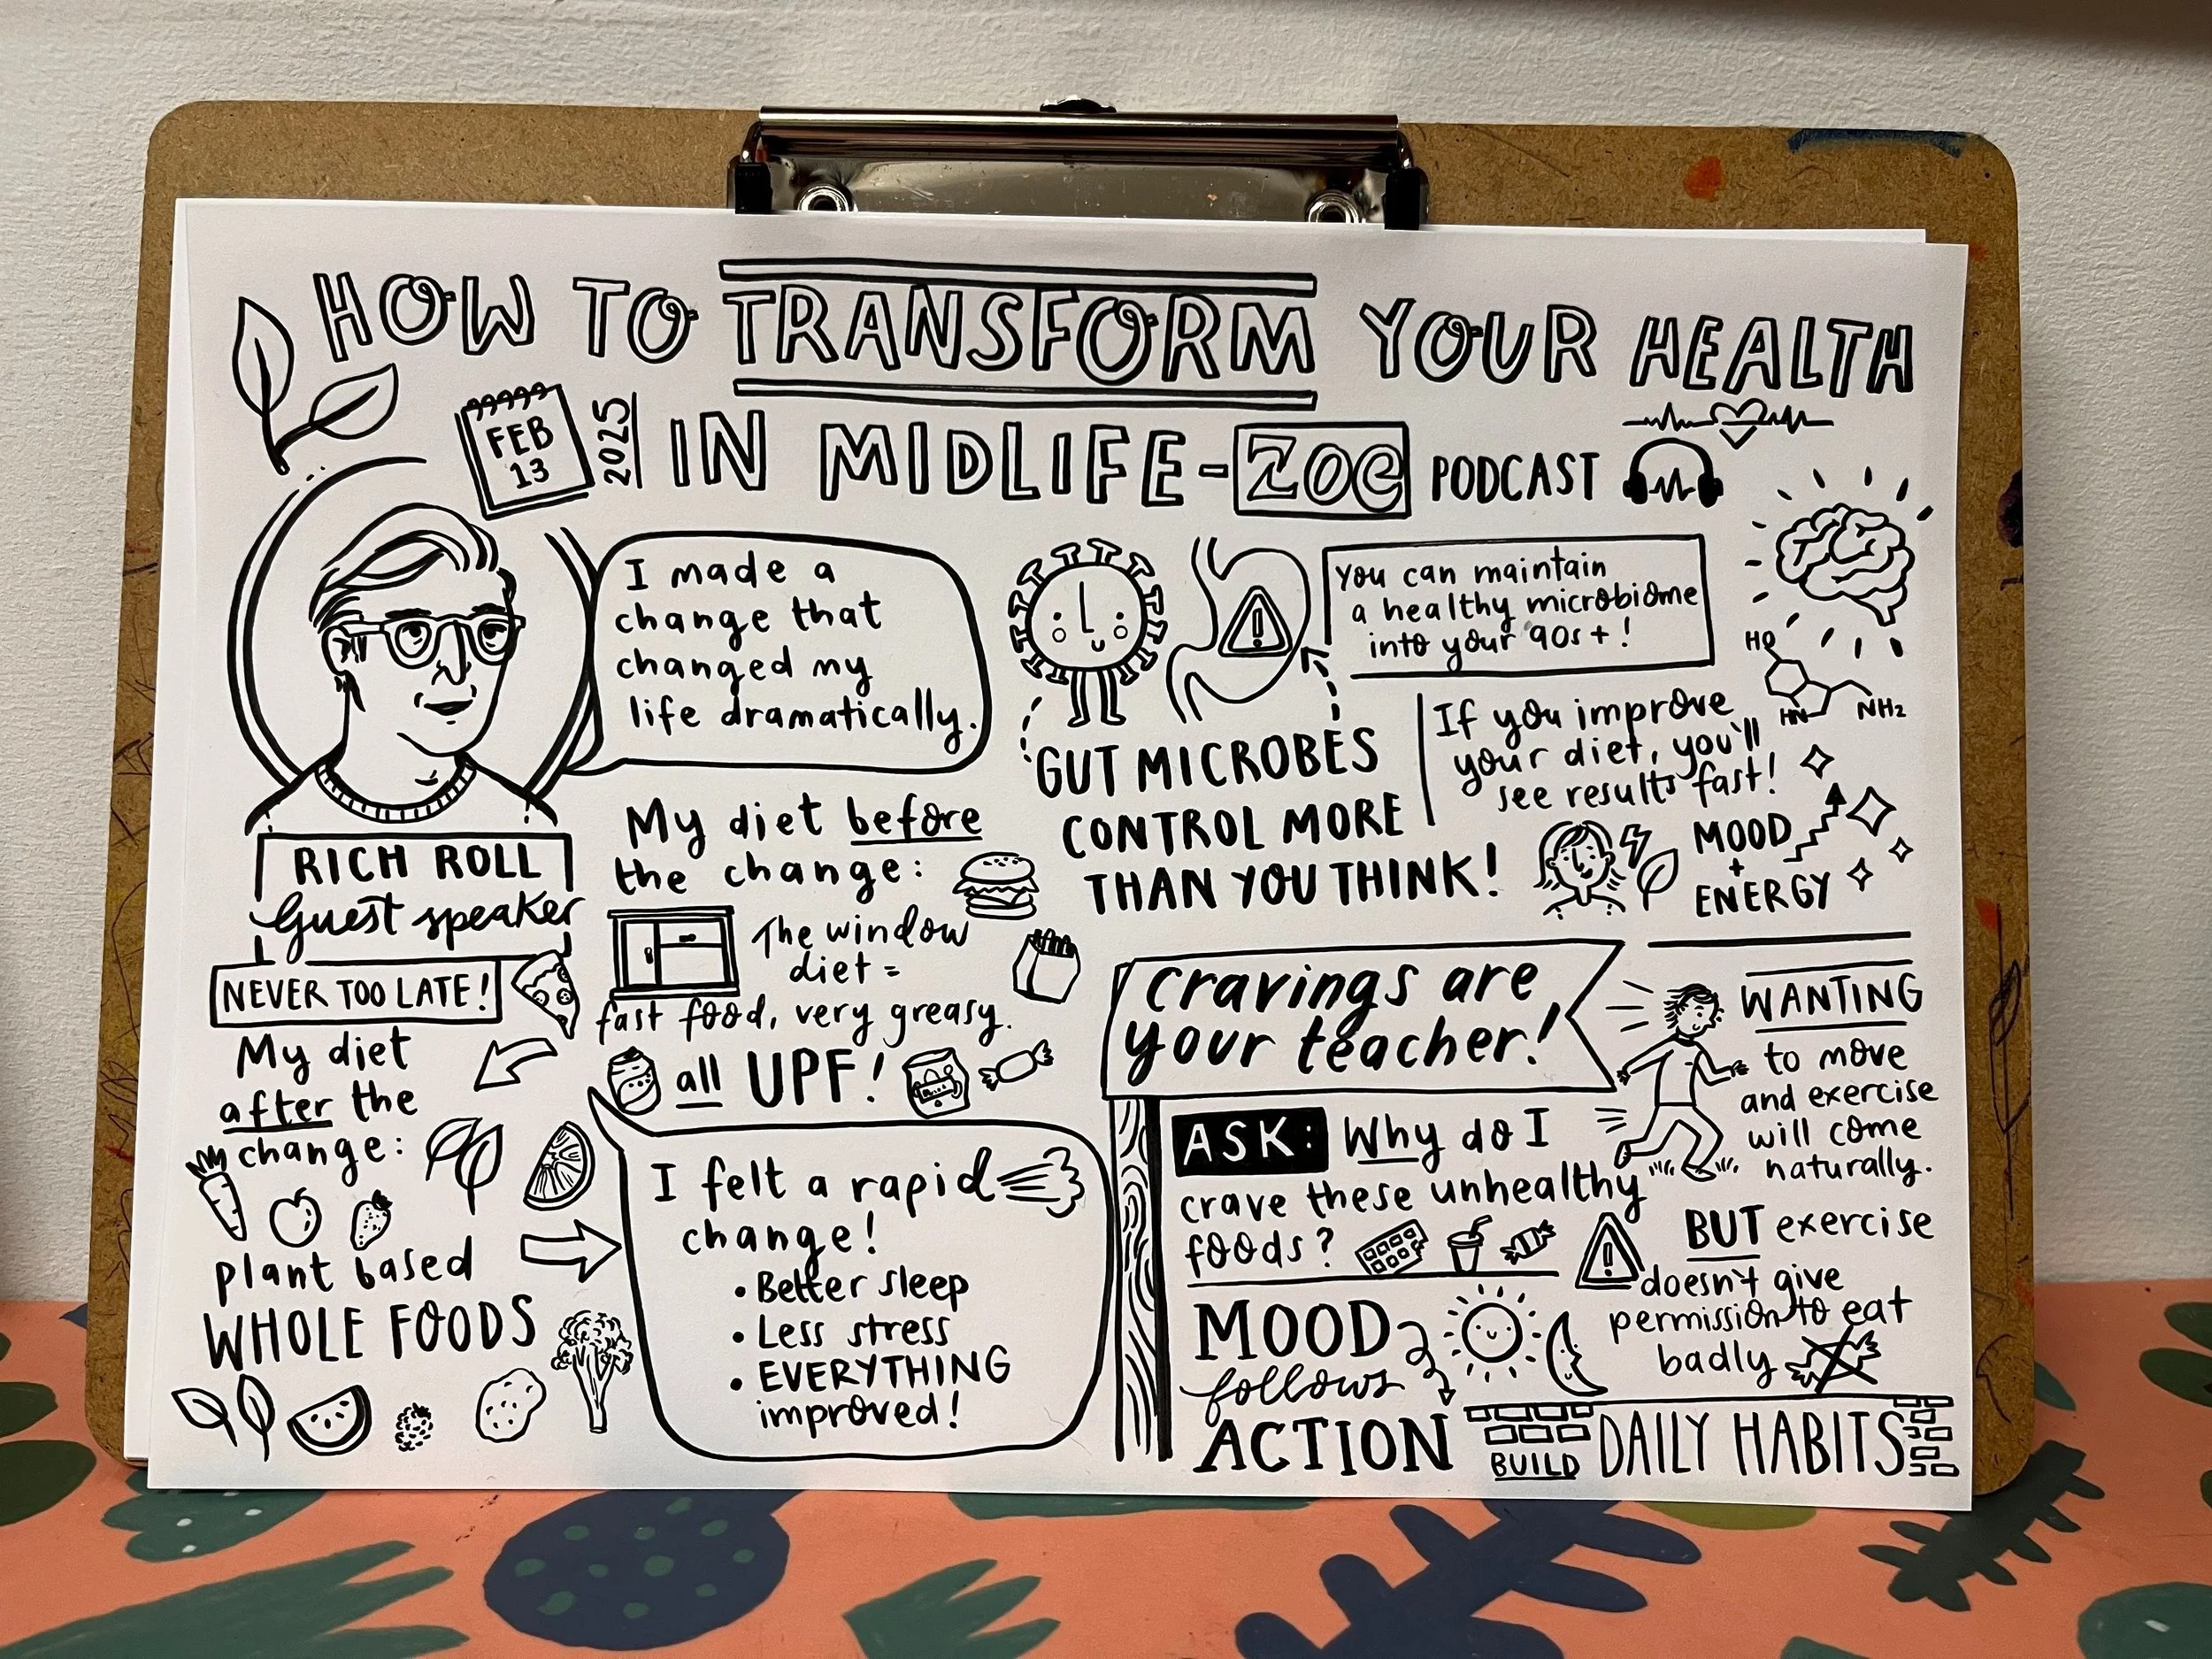 HOW TO TRANSFORM YOUR HEALTH
FEB
13
2025
IN MIDLIFE - ZOE PODCAST
I made a
change that
changed my
life dramatically.
RICH ROLL
Guest speaker
NEVER TOO LATE!
My diet before
the change:
The window
diet =
fast food, very greasy.
all UPF!
My diet
after the
change:
plant based
WHOLE FOODS
I felt a rapid
change!
• Better sleep
• Less stress
• EVERYTHING
improved!
You can maintain
a healthy microbiome
into your 90s+!
GUT MICROBES
CONTROL MORE
THAN YOU THINK!
HO
HN
NH2
If you improve
your diet, you'll
see results fast!
MOOD
+
ENERGY
cravings are
your teacher!
ASK: Why do I
crave these unhealthy
foods?
WANTING
to move
and exercise
will come
naturally.
BUT exercise
doesn't give
permission to eat
badly
MOOD
follows
ACTION
BUILD DAILY HABITS